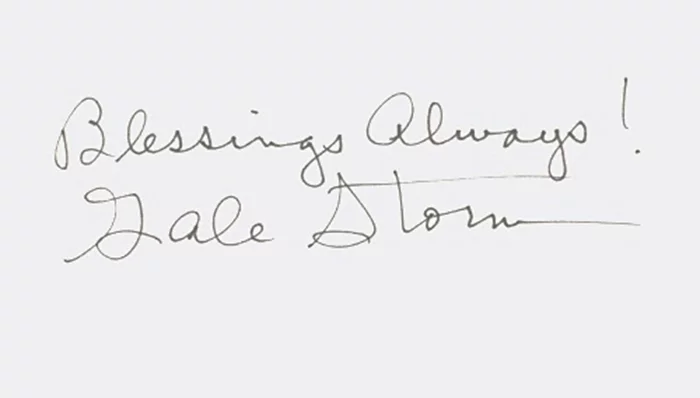 Blessings Always!
Gale Storm